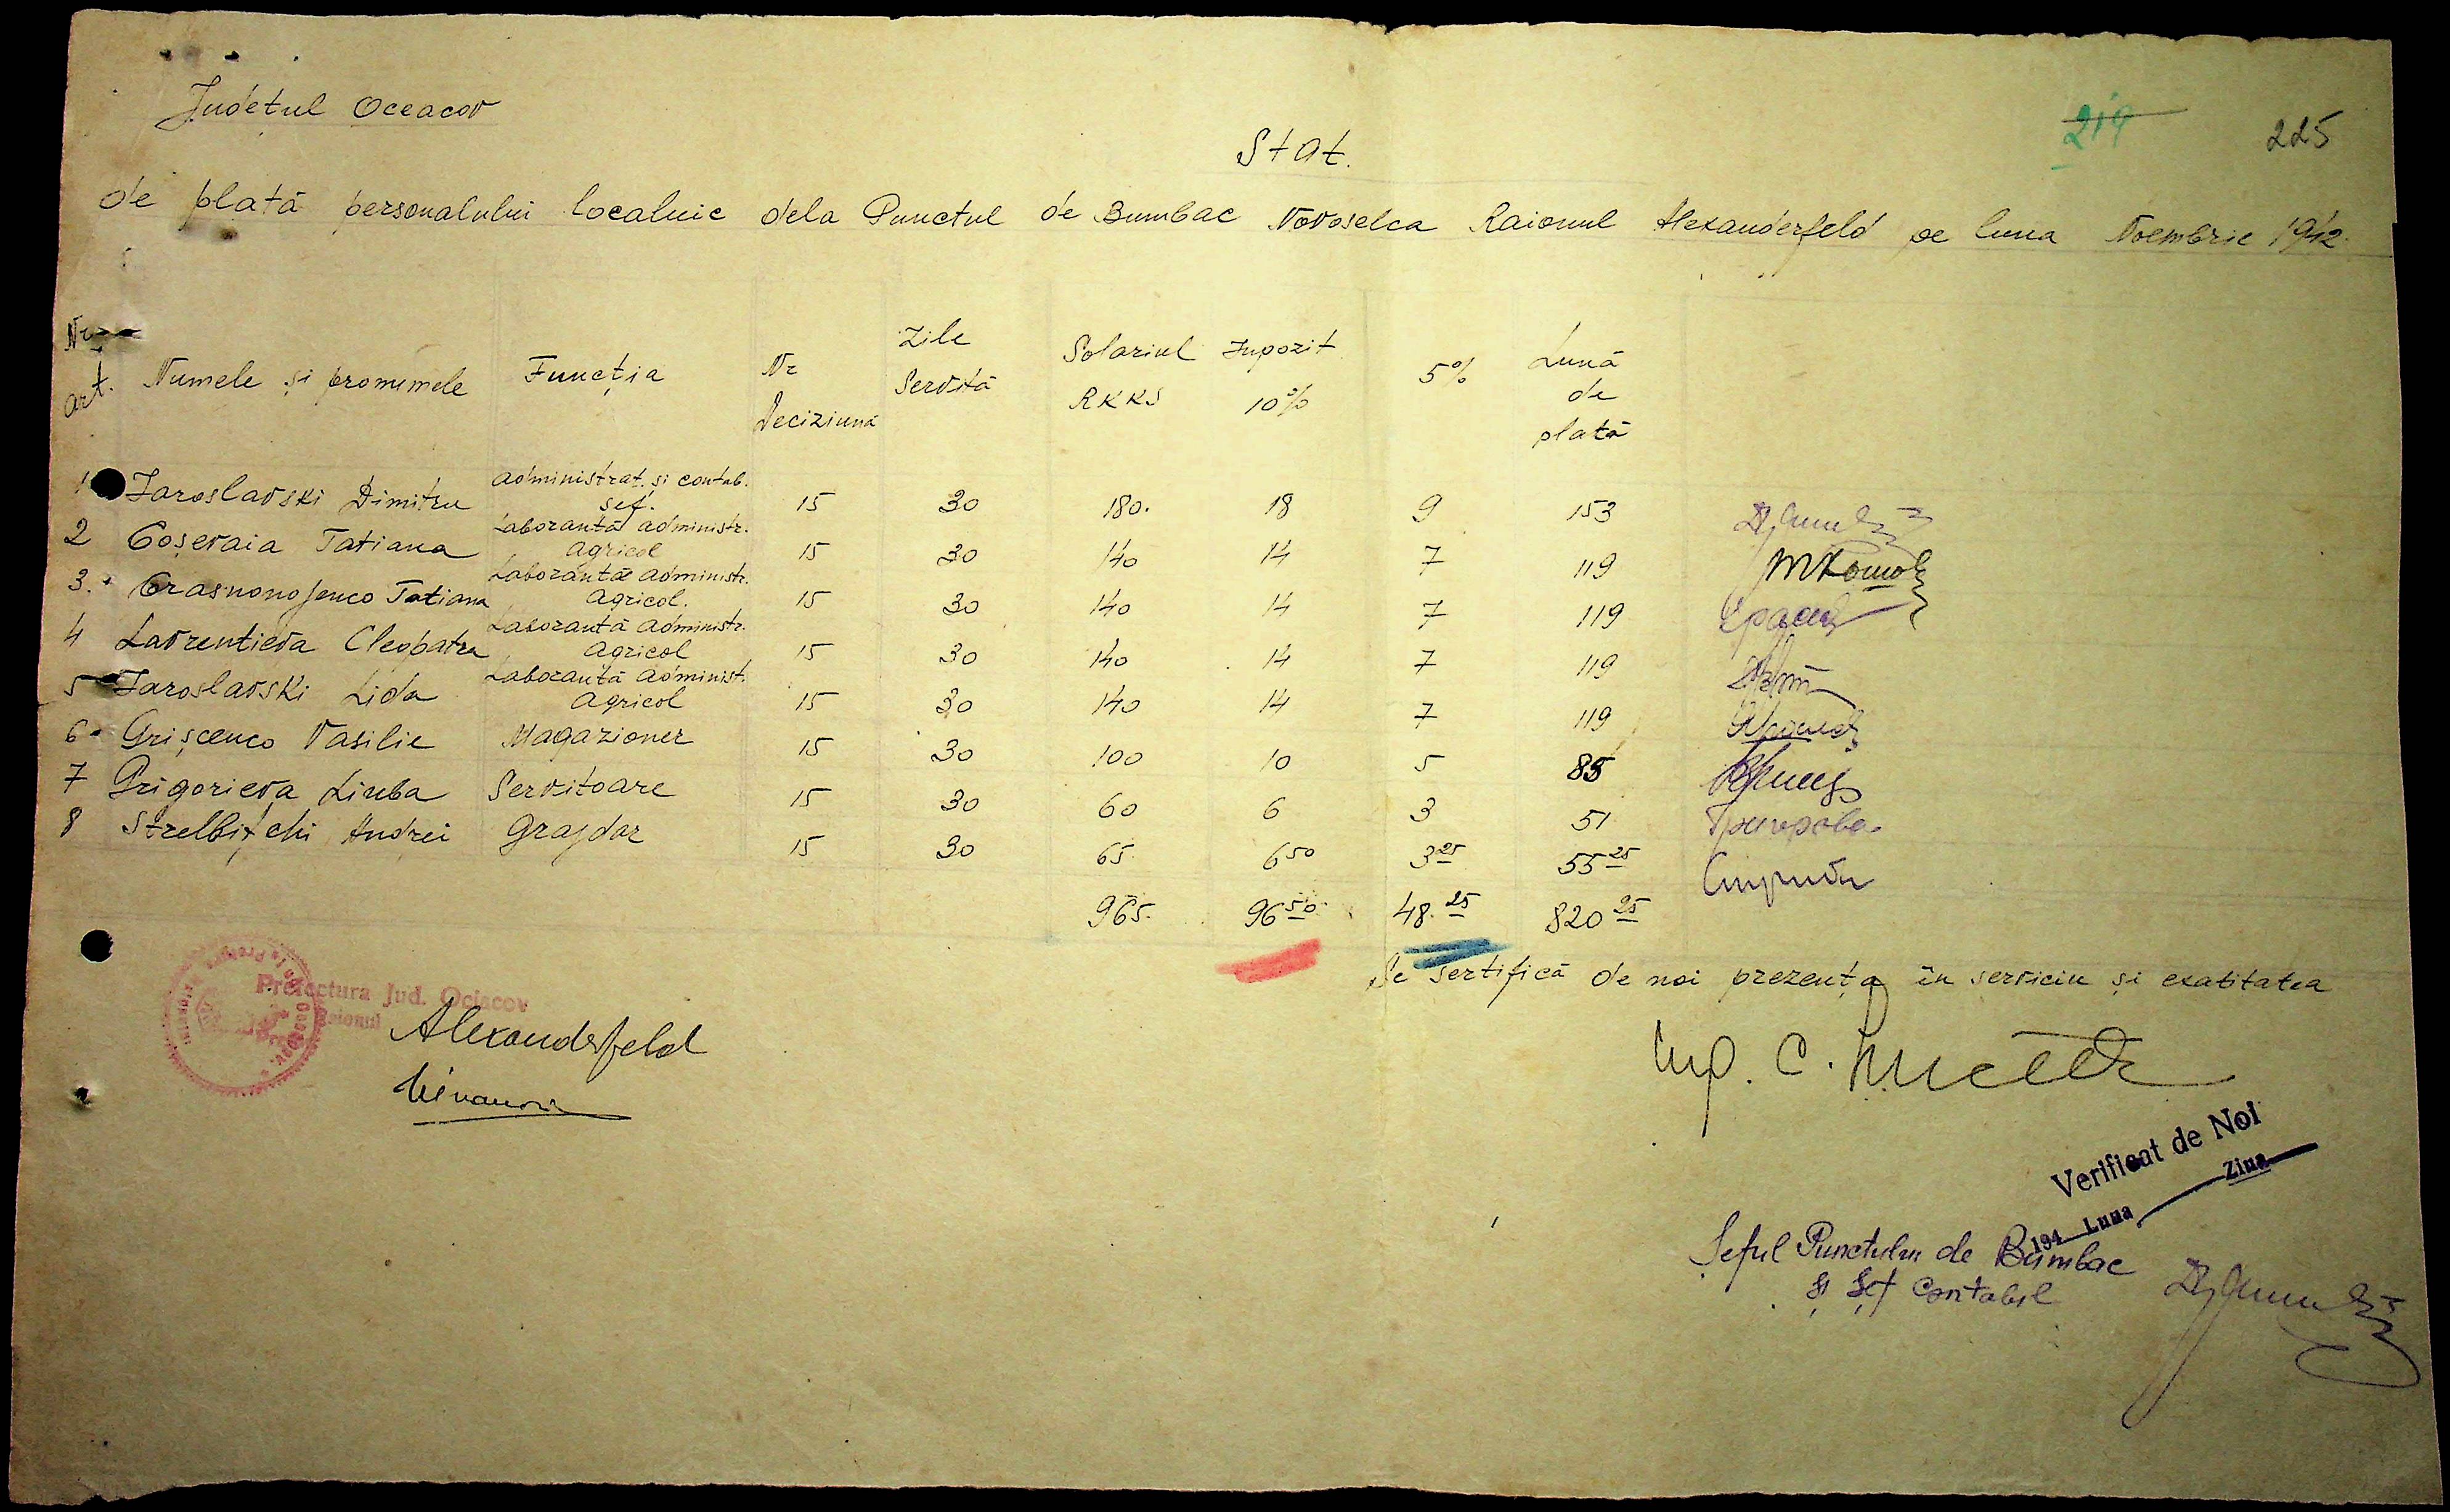 Județul Oceacov
219 225
Stat.
de plată personalului localnic dela Punctul de Bumbac Novoselca Raionul Alexanderfeld pe luna Noembrie 1942.
Nr art. Numele și pronumele Funcția Nr Deciziună Zile Servită Solariul RKKS Inpozit 10% 5% Lună de plată
1 Iaroslavski Dimitru Administrat. și contab. șef. 15 30 180. 18 9 153
2 Coșevaia Tatiana Laborantă administr. agricol 15 30 140 14 7 119
3. Crasnonosenco Tatiana Laborantă administr. agricol. 15 30 140 14 7 119
4 Lavrentieva Cleopatra Laborantă administr. agricol 15 30 140 14 7 119
5 Iaroslavski Lida Laborantă administ. agricol 15 30 140 14 7 119
6 Grișcenco Vasilie Magazioner 15 30 100 10 5 85
7 Grigorieva Liuba Servitoare 15 30 60 6 3 51 Григорова
8 Strelbițchi Andrei Grajdar 15 30 65 6 50 3 25 55 25
965. 96 50 48. 25 820 25
Se sertifică de noi prezența în serviciu și exatitatea
Prefectura Jud. Ociacov
Raionul Alexanderfeld
Ing. C.
Verificat de Noi
194 Luna Ziua
Șeful Punctului de Bumbac
și Șef Contabil